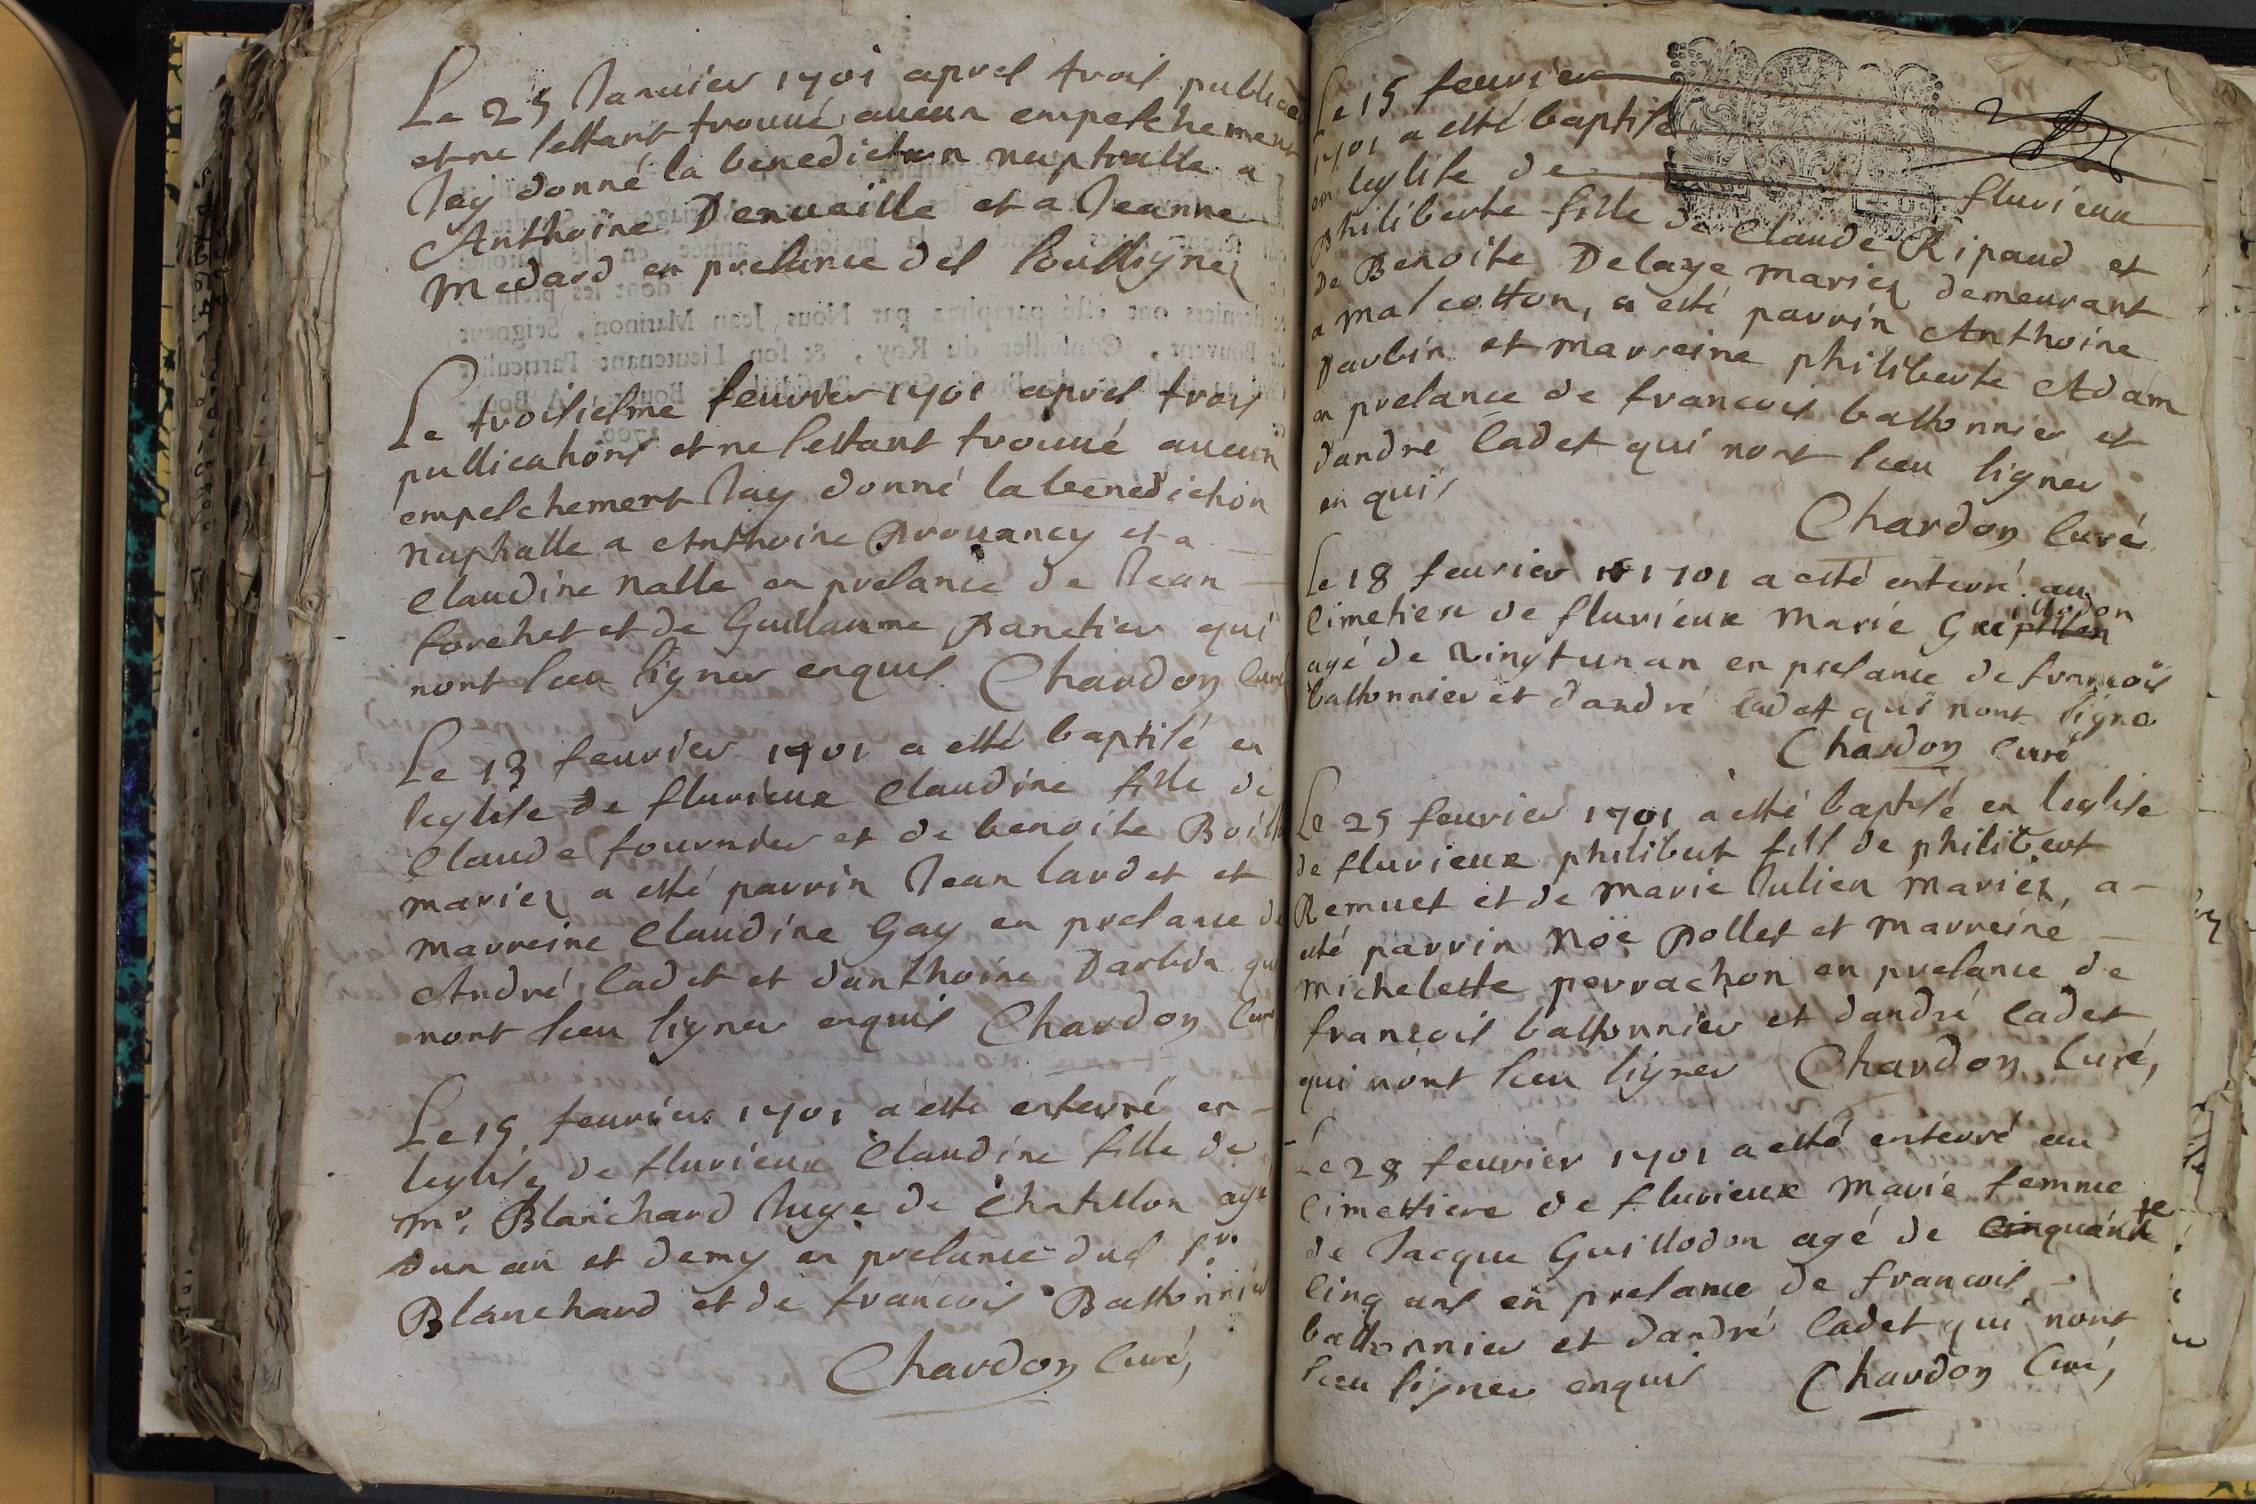 Le 25 Januier 1701 apres trois publica
et ne sestant trouué aucun empeschement
Jay donné la benediction nuptialle a
Anthoine Denuaille et a Jeanne
Medard en presance des soussignez
Le troisiesme feurier 1701 apres trois
publications et ne sestant trouué aucun
empeschement Jay donné la benediction
nuptialle a Anthoine Prouancy et a
Claudine nalle en presance de Jean
forehet et de Guillaume Panetier qui
nont sceu signer enquis Chardon Curé
Le 13 feurier 1701 a esté baptisé en
leglise de flurieux Claudine fille de
Claude fournier et de benoite
mariez a esté parrin Jean lardet et
marreine Claudine Gay en presance de
André Cadet et danthoine Darbin qui
nont sceu signer enquis Chardon Curé
Le 15 feurier 1701 a esté enterré en
leglise de flurieux Claudine fille de
mr. Blanchard Juge de Chatillon agé
dun an et demy en presance dud Sr.
Blanchard et de francois Bastonnier
Chardon Curé,
Le 15 feurier
1701 a esté baptisé
en leglise de flurieux
Philiberte fille de Claude Ripaud et
de Benoite Delaye mariez demeurant
a malcotton, a esté parrin Anthoine
Darbin et marreine philiberte Adam
en presance de francois bastonnier et
dandré Cadet qui nont sceu signer
enquis
Chardon Curé
Le 18 feurier 1701 a esté enterré au
Cimetiere de flurieux Marie Guillodon
agé de vingt un an en presance de francois
bastonnier et dandré Cadet qui nont signe
Chardon Curé
Le 25 feurier 1701 a esté baptisé en leglise
de flurieux philibert fils de philibert
Remuet et de Marie Julien mariez, a
esté parrin Noë Pollet et marreine
michelette perrachon en presance de
francois bastonnier et dandré Cadet
qui nont sceu signer Chardon Curé,
Le 28 feurier 1701 a esté enterré au
Cimettiere de flurieux Marie femme
de Jacque Guillodon agé de cinquante
Cinq ans en presance de francois
bastonnier et dandré Cadet qui nont
sceu signer enquis Chardon Curé,